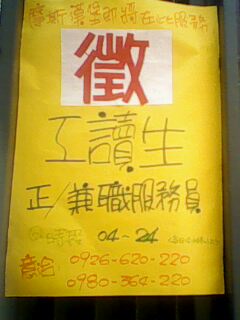 摩斯漢堡即將在此服務
徵
工讀生
正/兼職服務員
時段 04-24
意洽: 0926-620-220
0980-364-220